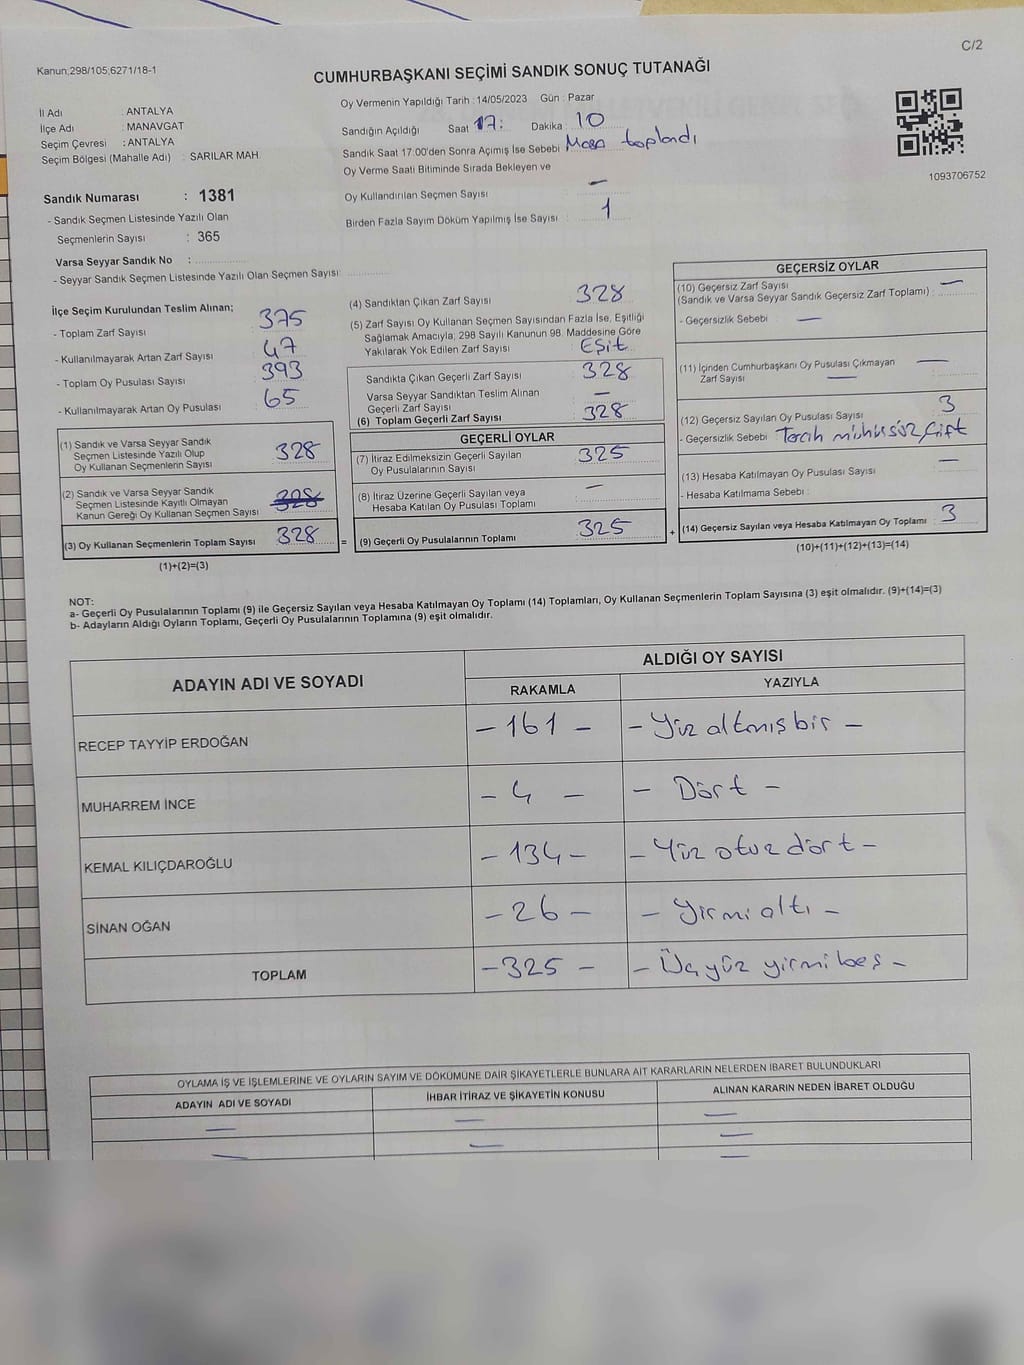 C/2
Kanun;298/105;6271/18-1
CUMHURBAŞKANI SEÇİMİ SANDIK SONUÇ TUTANAĞI
İl Adı : ANTALYA
İlçe Adı : MANAVGAT
Seçim Çevresi : ANTALYA
Seçim Bölgesi (Mahalle Adı) : SARILAR MAH
Oy Vermenin Yapıldığı Tarih : 14/05/2023 Gün : Pazar
Sandığın Açıldığı Saat 17: Dakika 10
Sandık Saat 17.00'den Sonra Açımış İse Sebebi Masa toplandı
Oy Verme Saati Bitiminde Sırada Bekleyen ve
Oy Kullandırılan Seçmen Sayısı : —
Birden Fazla Sayım Döküm Yapılmış İse Sayısı : 1
1093706752
Sandık Numarası : 1381
- Sandık Seçmen Listesinde Yazılı Olan
Seçmenlerin Sayısı : 365
Varsa Seyyar Sandık No :
- Seyyar Sandık Seçmen Listesinde Yazılı Olan Seçmen Sayısı:
İlçe Seçim Kurulundan Teslim Alınan;
- Toplam Zarf Sayısı 375
- Kullanılmayarak Artan Zarf Sayısı 47
- Toplam Oy Pusulası Sayısı 393
- Kullanılmayarak Artan Oy Pusulası 65
(1) Sandık ve Varsa Seyyar Sandık
Seçmen Listesinde Yazılı Olup
Oy Kullanan Seçmenlerin Sayısı 328
(2) Sandık ve Varsa Seyyar Sandık
Seçmen Listesinde Kayıtlı Olmayan
Kanun Gereği Oy Kullanan Seçmen Sayısı 328
(3) Oy Kullanan Seçmenlerin Toplam Sayısı 328 =
(1)+(2)=(3)
(4) Sandıktan Çıkan Zarf Sayısı 328
(5) Zarf Sayısı Oy Kullanan Seçmen Sayısından Fazla İse, Eşitliği
Sağlamak Amacıyla; 298 Sayılı Kanunun 98. Maddesine Göre
Yakılarak Yok Edilen Zarf Sayısı : Eşit
Sandıkta Çıkan Geçerli Zarf Sayısı 328
Varsa Seyyar Sandıktan Teslim Alınan
Geçerli Zarf Sayısı —
(6) Toplam Geçerli Zarf Sayısı 328
GEÇERLİ OYLAR
(7) İtiraz Edilmeksizin Geçerli Sayılan
Oy Pusulalarının Sayısı 325
(8) İtiraz Üzerine Geçerli Sayılan veya
Hesaba Katılan Oy Pusulası Toplamı —
(9) Geçerli Oy Pusulalarının Toplamı 325 +
GEÇERSİZ OYLAR
(10) Geçersiz Zarf Sayısı
(Sandık ve Varsa Seyyar Sandık Geçersiz Zarf Toplamı) : —
- Geçersizlik Sebebi : —
(11) İçinden Cumhurbaşkanı Oy Pusulası Çıkmayan
Zarf Sayısı —
(12) Geçersiz Sayılan Oy Pusulası Sayısı 3
- Geçersizlik Sebebi Tercih mühürsüz, Çift
(13) Hesaba Katılmayan Oy Pusulası Sayısı —
- Hesaba Katılmama Sebebi :
(14) Geçersiz Sayılan veya Hesaba Katılmayan Oy Toplamı 3
(10)+(11)+(12)+(13)=(14)
NOT:
a- Geçerli Oy Pusulalarının Toplamı (9) ile Geçersiz Sayılan veya Hesaba Katılmayan Oy Toplamı (14) Toplamları, Oy Kullanan Seçmenlerin Toplam Sayısına (3) eşit olmalıdır. (9)+(14)=(3)
b- Adayların Aldığı Oyların Toplamı, Geçerli Oy Pusulalarının Toplamına (9) eşit olmalıdır.
ADAYIN ADI VE SOYADI
ALDIĞI OY SAYISI
RAKAMLA YAZIYLA
RECEP TAYYİP ERDOĞAN - 161 - - Yüz altmış bir -
MUHARREM İNCE - 4 - - Dört -
KEMAL KILIÇDAROĞLU - 134 - - Yüz otuz dört -
SİNAN OĞAN - 26 - - Yirmi altı -
TOPLAM - 325 - - Üç yüz yirmi beş -
OYLAMA İŞ VE İŞLEMLERİNE VE OYLARIN SAYIM VE DÖKÜMÜNE DAİR ŞİKAYETLERLE BUNLARA AİT KARARLARIN NELERDEN İBARET BULUNDUKLARI
ADAYIN ADI VE SOYADI İHBAR İTİRAZ VE ŞİKAYETİN KONUSU ALINAN KARARIN NEDEN İBARET OLDUĞU
— — —
— — —
—